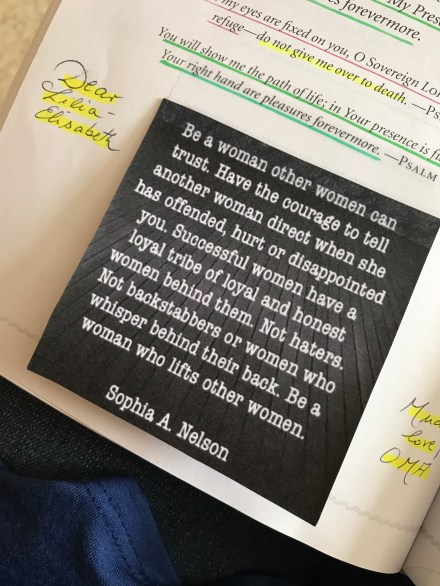 My Pres
forevermore.
my eyes are fixed on you, O Sovereign Lor
refuge—do not give me over to death. —Ps
You will show me the path of life; in Your presence is fu
Your right hand are pleasures forevermore. —Psalm
Dear
Lilia-
Elisabeth
Be a woman other women can
trust. Have the courage to tell
another woman direct when she
has offended, hurt or disappointed
you. Successful women have a
loyal tribe of loyal and honest
women behind them. Not haters.
Not backstabbers or women who
whisper behind their back. Be a
woman who lifts other women.
Sophia A. Nelson
Muc
love,
OMA